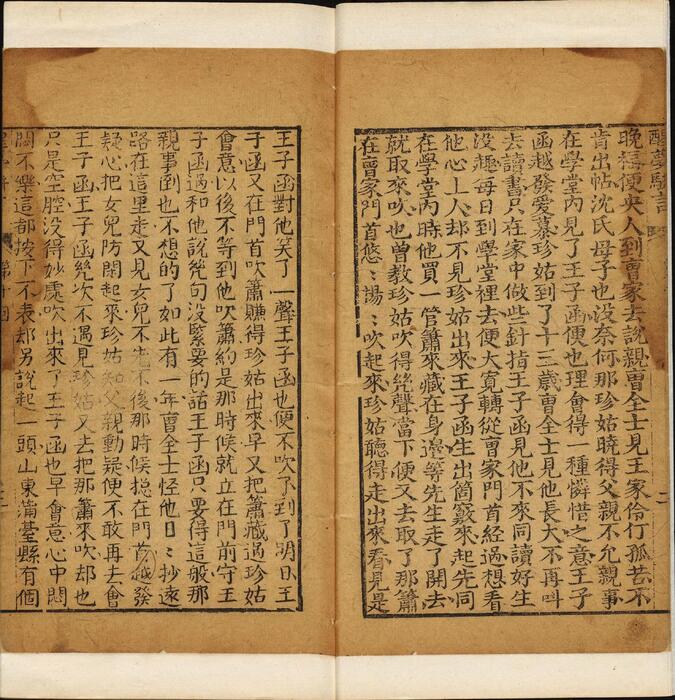 醒夢駢言
二
晚得便央人到曹家去說親曹全士見王家伶仃孤苦不
肯出帖沈氏母子也没奈何那珍姑曉得父親不允親事
在學堂內見了王子函便也理會得一種憐惜之意王子
函越發愛慕珍姑到了十三歲曹全士見他長大不再呌
去讀書只在家中做些針指王子函見他不來同讀好生
没趣每日到學堂裡去便大寬轉從曹家門首經過想看
他心上人却不見珍姑出來王子函生出箇竅來起先同
在學堂內時他買一管簫來藏在身邊等先生走了開去
就取來吹也曾教珍姑吹得幾聲當下便又去取了那簫
在曹家門首悠：揚：吹起來珍姑聽得走出來看見是
王子函對他笑了一聲王子函也便不吹了到了明日王
子函又在門首吹簫賺得珍姑出來早又把簫藏過珍姑
會意以後不等到他吹簫約是那時候就立在門前守王
子函過和他說幾句没緊要的話王子函只要得這般那
親事到也不想的了如此有一年曹全士怪他日：抄遠
路在這里走又見女兒不先不後那時候搃在門首越發
疑心把女兒防閑起來珍姑知父親動疑便不敢再去會
王子函王子函幾次不遇見珍姑又去把那簫來吹却也
只是空腔没得妙處吹出來了王子函也早會意心中悶
悶不樂這都按下不表却另說起一頭山東蒲臺縣有個
第十回